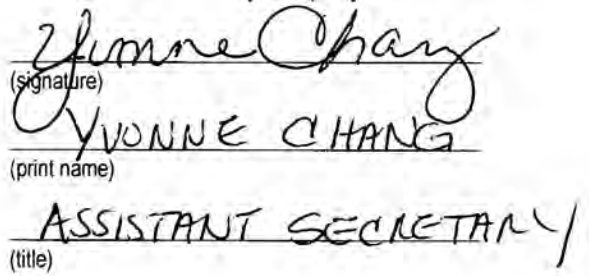 Yvonne Chang
(signature)
YVONNE CHANG
(print name)
ASSISTANT SECRETARY
(title)